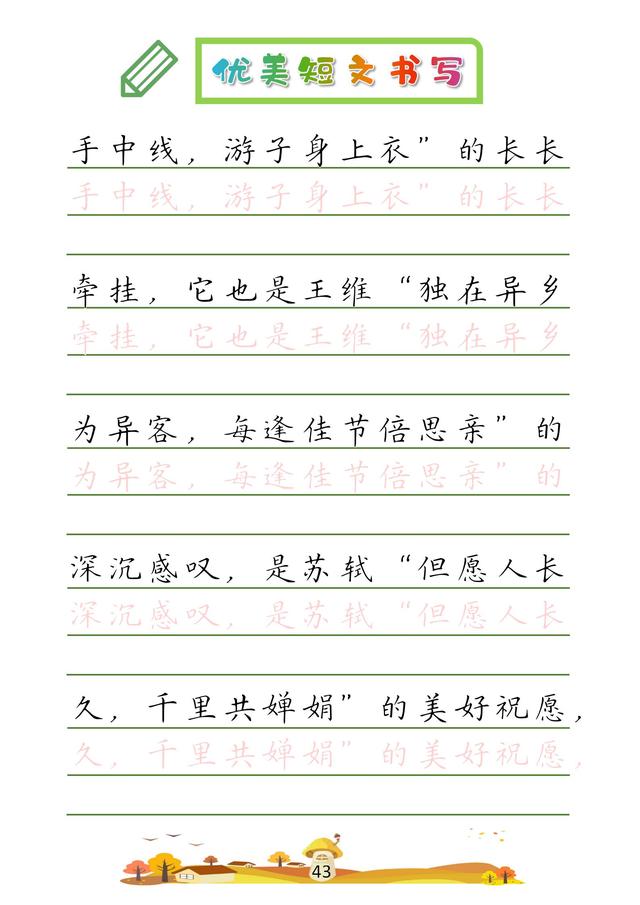 优美短文书写
手中线，游子身上衣”的长长
手中线，游子身上衣”的长长
牵挂，它也是王维“独在异乡
牵挂，它也是王维“独在异乡
为异客，每逢佳节倍思亲”的
为异客，每逢佳节倍思亲”的
深沉感叹，是苏轼“但愿人长
深沉感叹，是苏轼“但愿人长
久，千里共婵娟”的美好祝愿，
久，千里共婵娟”的美好祝愿，
43